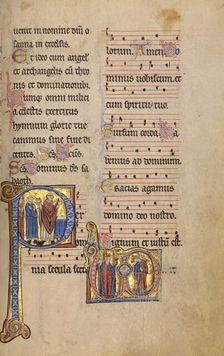 uenit in nomine dm̄i o
sanna in excelsis.
Et ideo cum angel
et archangelis cū thro
nis et dominationib;
cumq; omni milici
a celestis exercitus
hymnum glorie tue
canimus sine fine di
centes. Scs̄ Scs̄
Scs̄ Dominus ds̄ sa
baoth.
P
nia secula secl
lorum. Amen. Do
minus uobiscum. et
cum spiritu tuo.
Sursum corda. ha
bemus ad dominum.
Gracias agamus
domino deo nostro.
Dignum et iustū est.